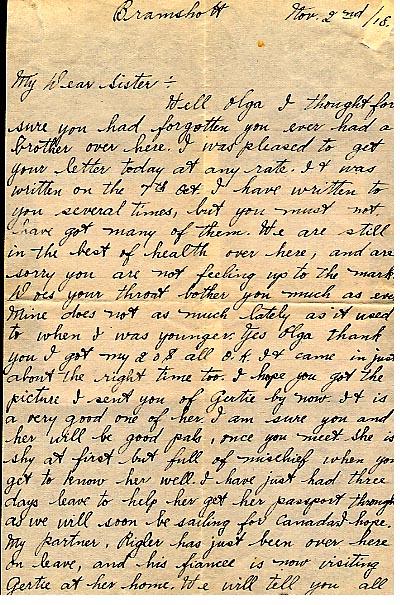 Bramshott Nov. 2nd/18.
My Dear Sister :-
Well Olga I thought for
sure you had forgotten you ever had a
brother over here. I was pleased to get
your letter today at any rate. It was
written on the 7th Oct I have written to
you several times, but you must not
have got many of them. We are still
in the best of health over here, and are
sorry you are not feeling up to the mark
Does your throat bother you much as ever
Mine does not as much lately as it used
to when I was younger. Yes Olga thank
you I got my all O.K. It came in just
about the right time too. I hope you got the
picture I sent you of Gertie by now. It is
a very good one of her. I am sure you and
her will be good pals, once you meet She is
shy at first but full of mischief when you
get to know her well. I have just had three
days leave to help her get her passport through
as we will soon be sailing for Canada I hope.
My partner, Rigler has just been over here
on leave, and his fiancee is now visiting
Gertie at her home. We will tell you all